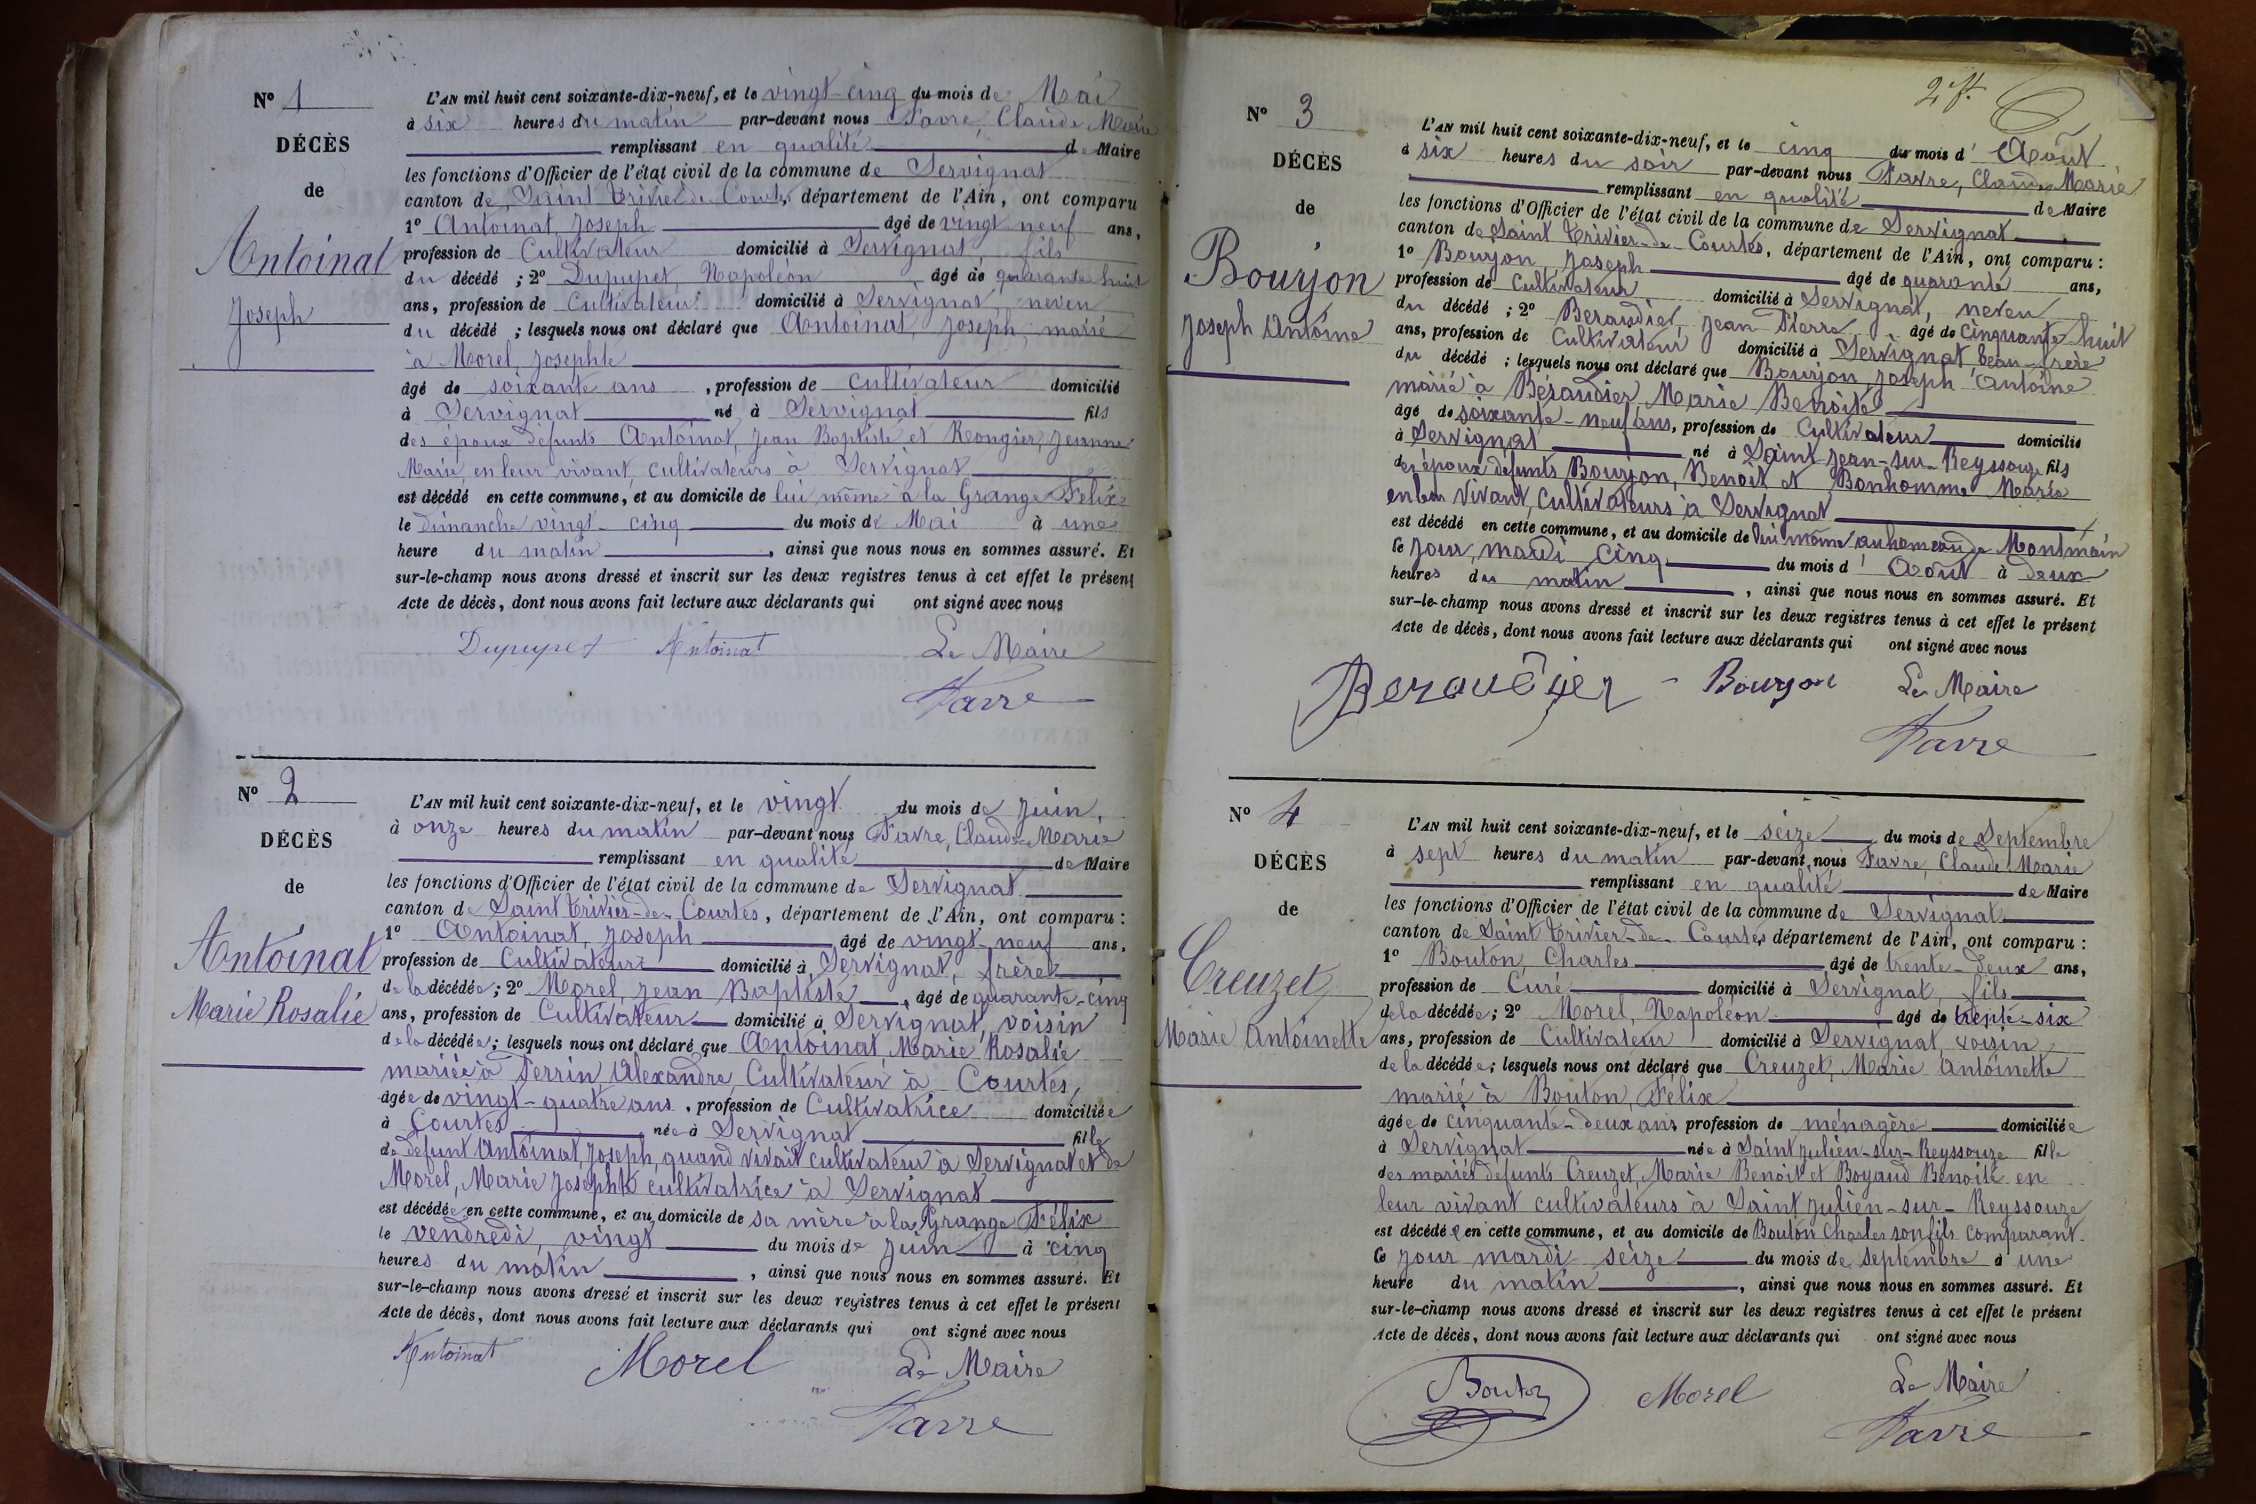 N° 1
DÉCÈS
de
Antoinat
Joseph
L'AN mil huit cent soixante-dix-neuf, et le vingt-cinq du mois de Mai
à six heures du matin par-devant nous Favre, Claude Marie
remplissant en qualité de Maire
les fonctions d'Officier de l'état civil de la commune de Servignat
canton de Saint Trivier de Courtes, département de l'Ain, ont comparu
1° Antoinat, Joseph âgé de vingt neuf ans,
profession de Cultivateur domicilié à Servignat, fils
du décédé ; 2° Dupupet, Napoléon âgé de quarante huit
ans, profession de Cultivateur domicilié à Servignat, neveu
du décédé ; lesquels nous ont déclaré que Antoinat, Joseph, marié
à Morel, Josephte
âgé de soixante ans, profession de cultivateur domicilié
à Servignat né à Servignat fils
des époux défunts Antoinat, Jean Baptiste et Rongier, Jeanne
Marie, en leur vivant, cultivateurs à Servignat
est décédé en cette commune, et au domicile de lui même à la Grange Félix
le dimanche vingt-cinq du mois de Mai à une
heure du matin, ainsi que nous nous en sommes assuré. Et
sur-le-champ nous avons dressé et inscrit sur les deux registres tenus à cet effet le présent
Acte de décès, dont nous avons fait lecture aux déclarants qui ont signé avec nous
Dupupet Antoinat Le Maire
Favre
N° 2
DÉCÈS
de
Antoinat
Marie Rosalie
L'AN mil huit cent soixante-dix-neuf, et le vingt du mois de Juin,
à onze heures du matin par-devant nous Favre, Claude Marie
remplissant en qualité de Maire
les fonctions d'Officier de l'état civil de la commune de Servignat
canton de Saint Trivier-de-Courtes, département de l'Ain, ont comparu :
1° Antoinat, Joseph âgé de vingt-neuf ans,
profession de Cultivateur domicilié à Servignat, frère
de la décédée ; 2° Morel, Jean Baptiste, âgé de quarante-cinq
ans, profession de Cultivateur domicilié à Servignat, voisin
de la décédée ; lesquels nous ont déclaré que Antoinat Marie Rosalie
mariée à Perrin, Alexandre, Cultivateur à Courtes,
âgée de vingt-quatre ans, profession de Cultivatrice domiciliée
à Courtes née à Servignat fille
de défunt Antoinat, Joseph, quand vivait cultivateur à Servignat et de
Morel, Marie Josephte cultivatrice à Servignat
est décédée en cette commune, et au domicile de sa mère à la Grange Félix
le vendredi, vingt du mois de Juin à cinq
heures du matin, ainsi que nous nous en sommes assuré. Et
sur-le-champ nous avons dressé et inscrit sur les deux registres tenus à cet effet le présent
Acte de décès, dont nous avons fait lecture aux déclarants qui ont signé avec nous
Antoinat Morel Le Maire
Favre
2 f.
N° 3
DÉCÈS
de
Bourjon
Joseph Antoine
L'AN mil huit cent soixante-dix-neuf, et le cinq du mois d'Août
à six heures du soir par-devant nous Favre, Claude Marie
remplissant en qualité de Maire
les fonctions d'Officier de l'état civil de la commune de Servignat
canton de Saint Trivier-de-Courtes, département de l'Ain, ont comparu :
1° Bourjon, Joseph âgé de quarante ans,
profession de Cultivateur domicilié à Servignat, neveu
du décédé ; 2° Beraudier, Jean Pierre, âgé de cinquante-huit
ans, profession de Cultivateur domicilié à Servignat, beau-frère
du décédé ; lesquels nous ont déclaré que Bourjon, Joseph Antoine
marié à Béraudier, Marie Benoite
âgé de soixante-neuf ans, profession de Cultivateur domicilié
à Servignat né à Saint-Jean-sur-Reyssouze fils
des époux défunts Bourjon, Benoit et Bonhomme Marie
en leur vivant, cultivateurs à Servignat
est décédé en cette commune, et au domicile de lui même au hameau de Montmain
le jour, mardi cinq du mois d'Août à deux
heures du matin, ainsi que nous nous en sommes assuré. Et
sur-le-champ nous avons dressé et inscrit sur les deux registres tenus à cet effet le présent
Acte de décès, dont nous avons fait lecture aux déclarants qui ont signé avec nous
Bourjon Le Maire
Favre
N° 4
DÉCÈS
de
Creuzet
Marie Antoinette
L'AN mil huit cent soixante-dix-neuf, et le seize du mois de Septembre
à sept heures du matin par-devant nous Favre, Claude Marie
remplissant en qualité de Maire
les fonctions d'Officier de l'état civil de la commune de Servignat
canton de Saint Trivier-de-Courtes, département de l'Ain, ont comparu :
1° Bouton, Charles âgé de trente-deux ans,
profession de Curé domicilié à Servignat, fils
de la décédée ; 2° Morel, Napoléon âgé de trente-six
ans, profession de Cultivateur domicilié à Servignat, voisin
de la décédée ; lesquels nous ont déclaré que Creuzet, Marie Antoinette
marié à Bouton, Félix
âgée de cinquante-deux ans profession de ménagère domiciliée
à Servignat née à Saint Julien-sur-Reyssouze fille
des mariés défunts Creuzet, Marie Benoit et Boyaud Benoite en
leur vivant cultivateurs à Saint Julien-sur-Reyssouze
est décédée en cette commune, et au domicile de Bouton Charles son fils comparant
Ce jour mardi seize du mois de Septembre à une
heure du matin, ainsi que nous nous en sommes assuré. Et
sur-le-champ nous avons dressé et inscrit sur les deux registres tenus à cet effet le présent
Acte de décès, dont nous avons fait lecture aux déclarants qui ont signé avec nous
Bouton Morel Le Maire
Favre